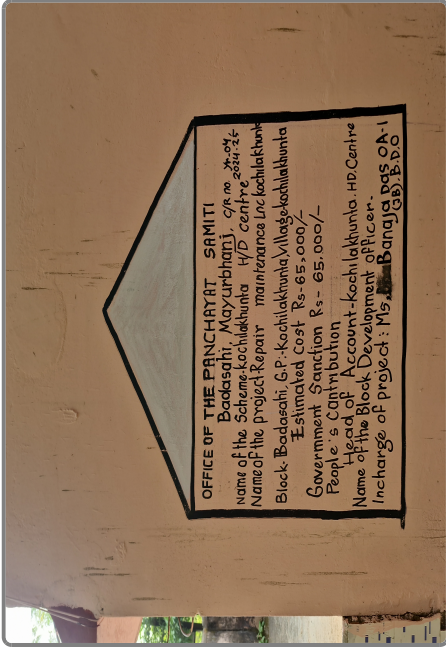 OFFICE OF THE PANCHAYAT SAMITI
Badasahi, Mayurbhanj, C/R no 04
Name of the Scheme-kochilakhunta H/D centre 2024-25
Name of the project-Repair maintenance Lnc kochilakhunta
Block-Badasahi, G.P:-Kochilakhunta, Village-kochilakhunta
Estimated cost Rs:-65,000/-
Government Sanction Rs- 65,000/-
People's Contribution
Head of Account-kochilakhunta. HD. Centre
Name of the Block Development officer-
Incharge of project: Ms, Banaja Das OA-1
(GB). B.D.O